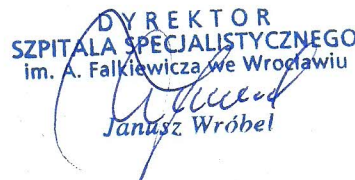 DYREKTOR
SZPITALA SPECJALISTYCZNEGO
im. A. Falkiewicza we Wrocławiu
Janusz Wróbel